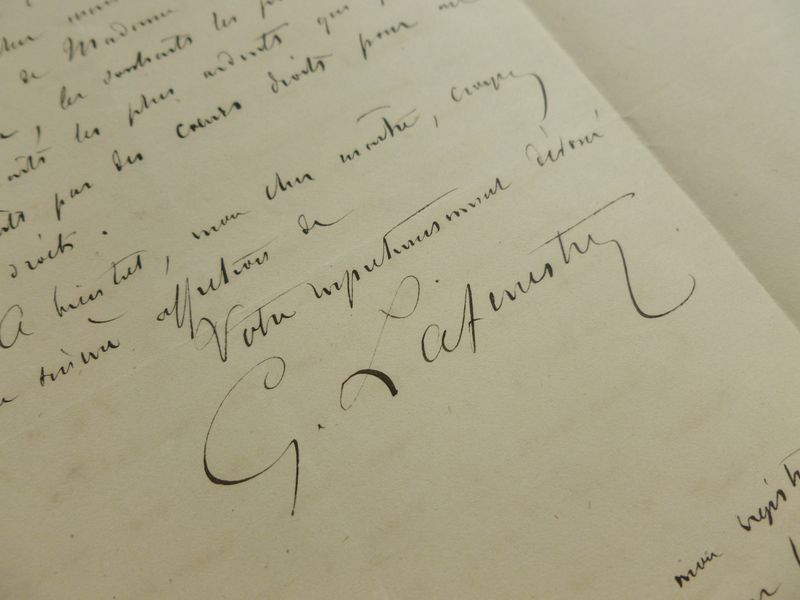 de Madame
, les souhaits les
les plus ardents que
par des cœurs droits pour
droits.
A bientôt, mon cher maître, croyez
sincère affection de
Votre respectueusement dévoué
G. Lafenestre
mon